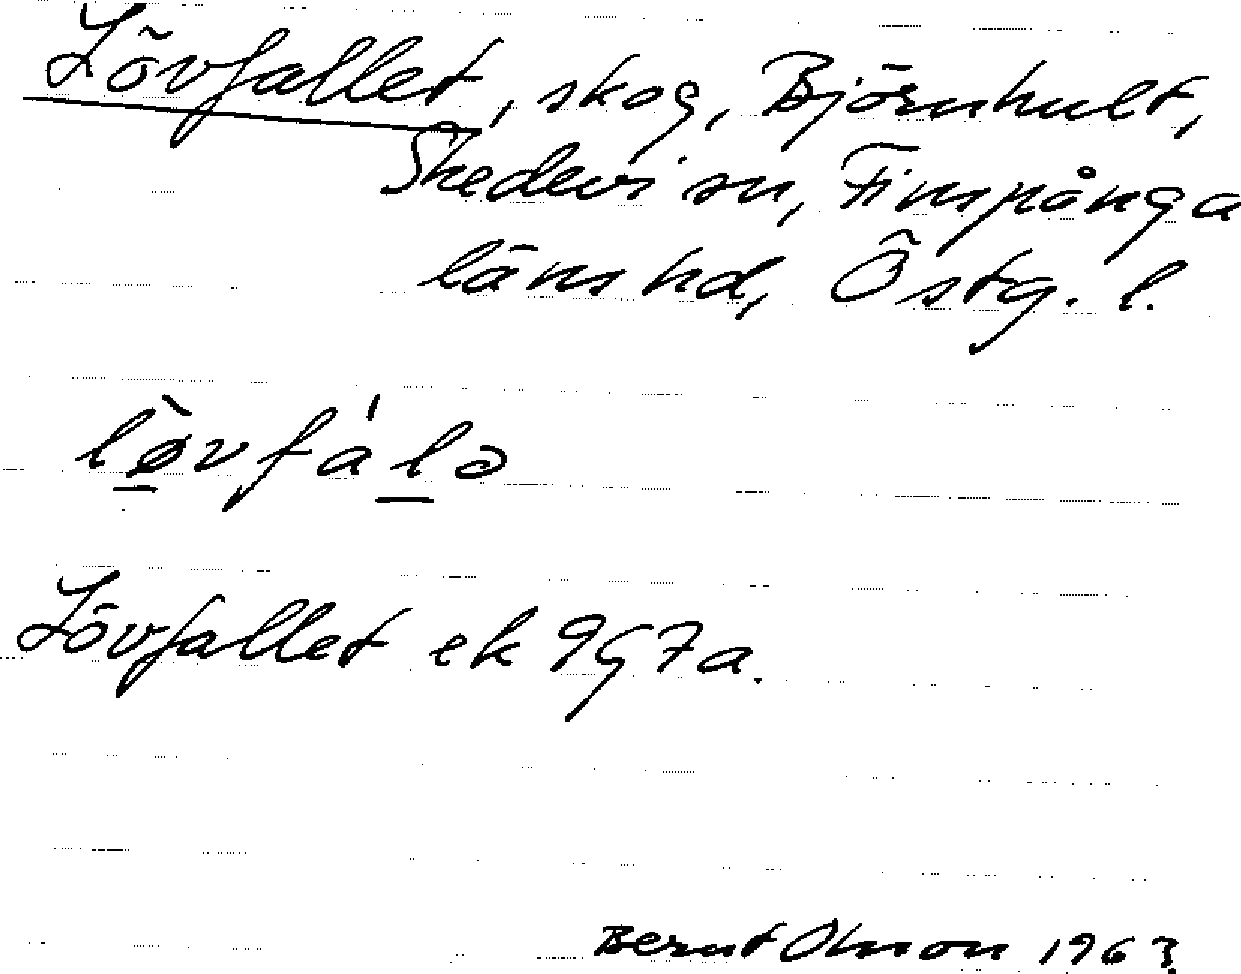 Lövfallet, skog, Björnhult,
Skedevi sn, Finspånga
läns hd, Östg. l.
lø̀vfálə
Lövfallet ek 9G7a.
Bernt Olsson 1963